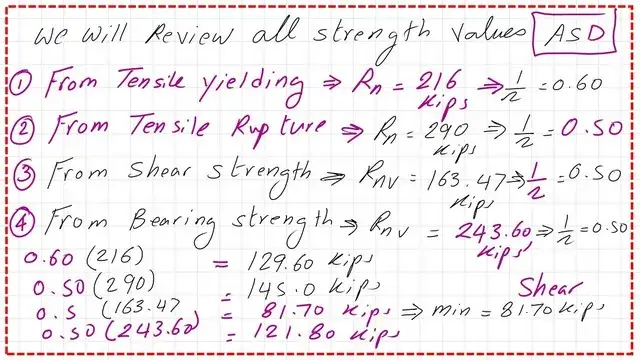 We will Review all strength values ASD
① From Tensile yielding ⇒ Rn = 216 Kips ⇒ 1/2 = 0.60
② From Tensile Rupture ⇒ Rn = 290 Kips ⇒ 1/2 = 0.50
③ From Shear strength ⇒ Rnv = 163.47 Kips ⇒ 1/2 = 0.50
④ From Bearing strength ⇒ Rnv = 243.60 Kips ⇒ 1/2 = 0.50
0.60 (216) = 129.60 Kips
0.50 (290) = 145.0 Kips Shear
0.5 (163.47 = 81.70 Kips ⇒ min = 81.70 Kips
0.50 (243.60) = 121.80 Kips